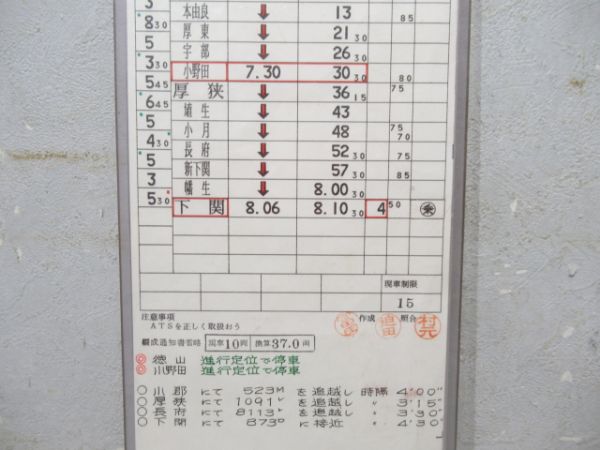 3 本由良 ↓ 13 85
8 30 厚東 ↓ 21 30
5 宇部 ↓ 26 30
3 30 小野田 7.30 30 30 80
5 45 厚狭 ↓ 36 15 75
6 45 埴生 ↓ 43
5 小月 ↓ 48 75 70
4 30 長府 ↓ 52 30 75
5 新下関 ↓ 57 30 85
3 幡生 ↓ 8.00 30
5 30 下関 8.06 8.10 30 4 50 乗
現車制限
15
注意事項 作成 照合
ATSを正しく取扱おう
編成通知書省略 現車10両 換算37.0両
◎ 徳山 進行定位で停車
◎ 小野田 進行定位で停車
○ 小郡にて 523M を追越し 時隔 4'00"
○ 厚狭にて 1091〃 を追越し 〃 3'15"
○ 長府にて 8113〃 を追越し 〃 3'30"
○ 下関にて 873D に接近 〃 4'30"